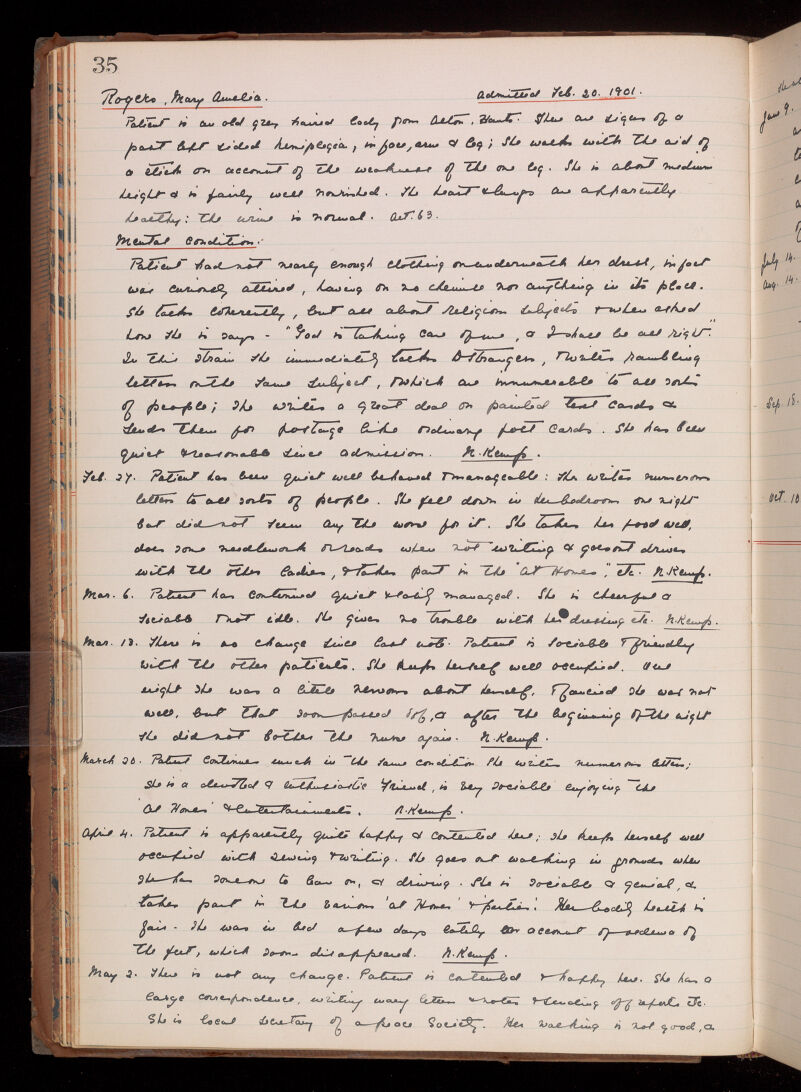 35
Rogers, Mary Amelia. Admitted Feb. 20. 1901.
Patient is an old grey haired lady from Alton, Hants. There are signs of a
past left sided hemiplegia, in face, arm & leg; She walks with the aid of
a stick on account of the weakness of the one leg. She is about medium
height & is fairly well nourished. The heart & lungs are apparently
healthy: the urine is normal. Aet. 63.
Mental condition:
Patient had not nearly enough clothing on underneath her dress, in fact
was curiously attired, having on no chemise nor anything in its place.
She talks coherently, but all about religious subjects & when asked
how she is says - "God is taking care of me, & I shall be all right."
In this strain she immediately talks to strangers, & writes rambling
letters on the same subject, & which are innumerable to all sorts
of people; she writes a great deal on painted text cards &
sends them for postage like ordinary post cards. She has been
quiet & reasonable since admission. N. Kemp.
Feb. 27. Patient has been quiet well behaved & manageable: she writes numerous
letters to all sorts of people. She fell down in her bedroom one night
but did not seem any the worse for it. She takes her food well,
does some needlework or reads when not writing & goes out drives
with the other ladies, & takes part in the "At Homes", etc. N. Kemp.
Mar. 6. Patient has continued quiet & easily managed. She is cheerful &
sociable & not idle. She gives no trouble with her dressing etc. N. Kemp.
Mar. 13. There is no change since last note. Patient is sociable & friendly
with the other patients. She keeps herself well occupied. One
night she was a little nervous about herself, & fancied she was not
well, but that soon passed off, & after the beginning of the night
she did not bother the nurse again. N. Kemp.
March 20. Patient continues much in the same condition she writes numerous letters;
she is a devoted & enthusiastic Friend, is very sociable enjoying the
'At Homes' & entertainments. N. Kemp.
April 4. Patient is apparently quite happy & contented here; she keeps herself well
occupied with sewing & writing. She goes out walking in grounds when
she has someone to lean on, & driving. She is sociable & genial, &
takes part in the various 'at Homes' & parties. Her bodily health is
fair. She was in bed a few days lately on account of oedema of
the feet, which soon disappeared. N. Kemp.
May 2. There is not any change. Patient is contented & happy here. She has a
large correspondence, writing many letters & notes & sending off reports etc.
She is local secretary of a peace Society. Her walking is not good, &
June 9.
July 14.
Aug. 14.
Sep. 18.
Oct. 10